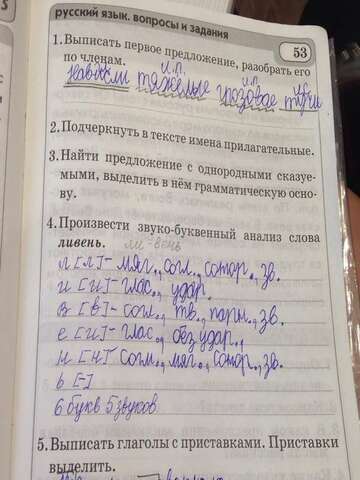 русский язык. вопросы и задания
53
1.Выписать первое предложение, разобрать его
по членам.
и.п. и.п.
тяжёлые грозовые тучи
2.Подчеркнуть в тексте имена прилагательные.
3.Найти предложение с однородными сказуе-
мыми, выделить в нём грамматическую осно-
ву.
4.Произвести звуко-буквенный анализ слова
ливень. ли-вень
л [л] - мяг., согл., сонор., зв.
и [и] - глас., удар.
в [в] - согл., тв., парн., зв.
е [и] - глас., безудар.,
н [н] - согл., мяг., сонор., зв.
ь [-]
6 букв 5 звуков
5.Выписать глаголы с приставками. Приставки
выделить.